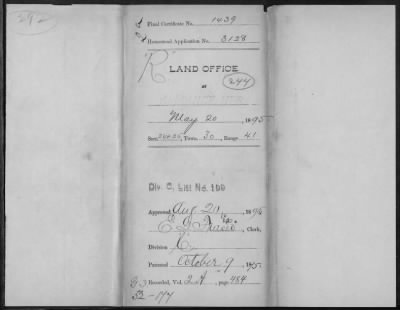 292
Final Certificate No. 1439
Homestead Application No. 3128
"R"
LAND OFFICE
244
AT
May 20, 1895
Sec. 26&35, Town. 30, Range 41
Div. C, List No. 100
Approved Aug 20, 189
E. , Clerk,
Division C
Patented October 9, 1895
Recorded, Vol. 24, page 484